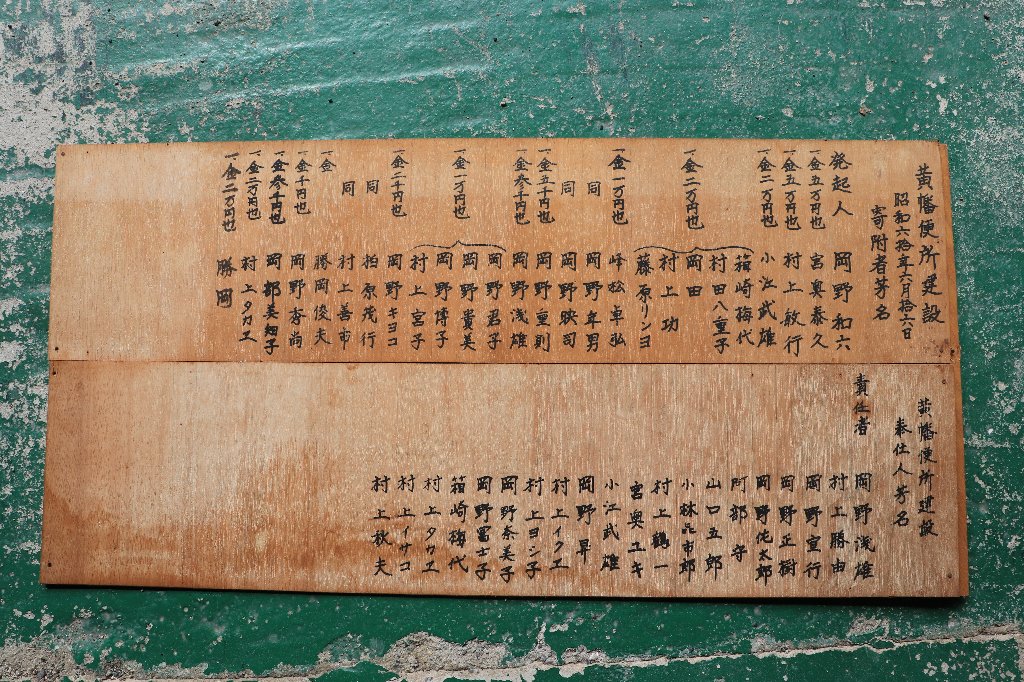 黄幡便所建設
昭和六拾年六月拾六日
寄附者芳名
発起人 岡野和六
一金五万円也 宮奥泰久
一金五万円也 村上敏行
一金二万円也 小江武雄
箱崎梅代
村田八重子
一金二万円也 岡田
村上功
藤原リンヨ
一金一万円也 峰松卓弘
同 岡野年男
同 岡野映司
一金五千円也 岡野重則
一金参千円也 岡野浅雄
岡野君子
一金一万円也 岡野貴美
岡野博子
村上宮子
一金二千円也 岡野キヨコ
同 柏原茂行
同 村上善市
一金 勝岡俊夫
一金千円也 岡野尚
一金参千円也 岡部美知子
一金二万円也 村上タカエ
一金二万円也 勝岡
黄幡便所建設
奉仕人芳名
責任者 岡野浅雄
村上勝由
岡野宣行
岡野正樹
岡野佗太郎
阿部守
山口五郎
小林市郎
村上鶴一
宮奥ユキ
小江武雄
岡野昇
村上イクエ
村上ヨシ子
岡野奈美子
岡野冨士子
箱崎梅代
村上タカエ
村上イサコ
村上秋夫